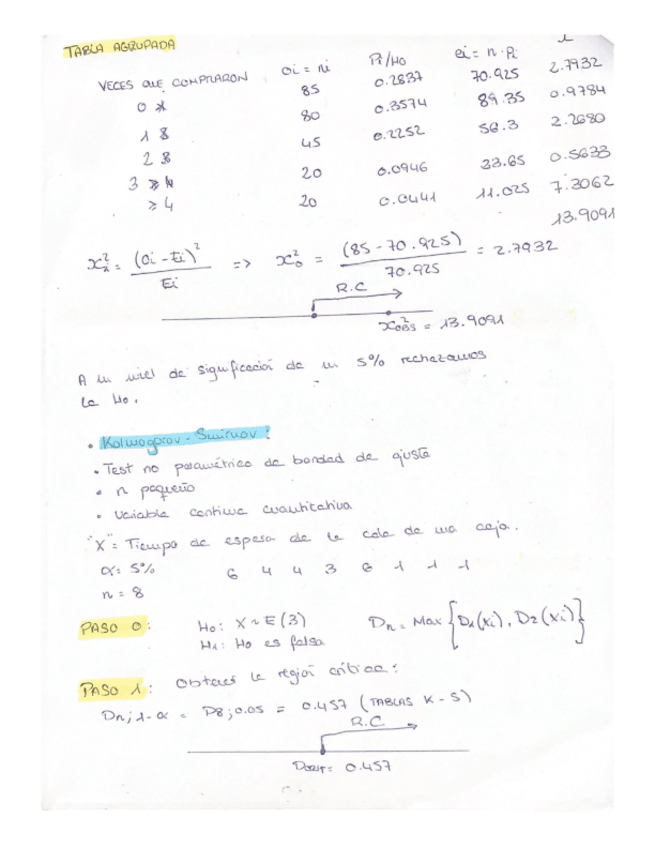 TABLA AGRUPADA
VECES QUE COMPRARON oi = ni Pi/Ho ei = n·Pi
0 85 0.2837 70.925 2.7932
1 80 0.3574 89.35 0.9784
2 45 0.2252 56.3 2.2680
3 20 0.0946 23.65 0.5633
≥ 4 20 0.0441 11.025 7.3062
13.9091
(oi - Ei)² / Ei => x²o = (85 - 70.925)² / 70.925 = 2.7932
R.C
x²OBS = 13.9091
A un nivel de significación de un 5% rechazamos
la Ho.
• Kolmogorov - Smirnov:
• Test no paramétrico de bondad de ajuste
• n pequeño
• Variable continua cuantitativa
"X" = Tiempo de espera de la cola de una caja.
α = 5% 6 4 4 3 6 1 1 1
n = 8
PASO 0: Ho: X ~ E(3) Dn = Max {D1(xi), D2(xi)}
H1: Ho es falsa
PASO 1: Obtener la región crítica:
Dn; 1-α = D8; 0.05 = 0.457 (TABLAS K-S)
R.C
DCRIT = 0.457